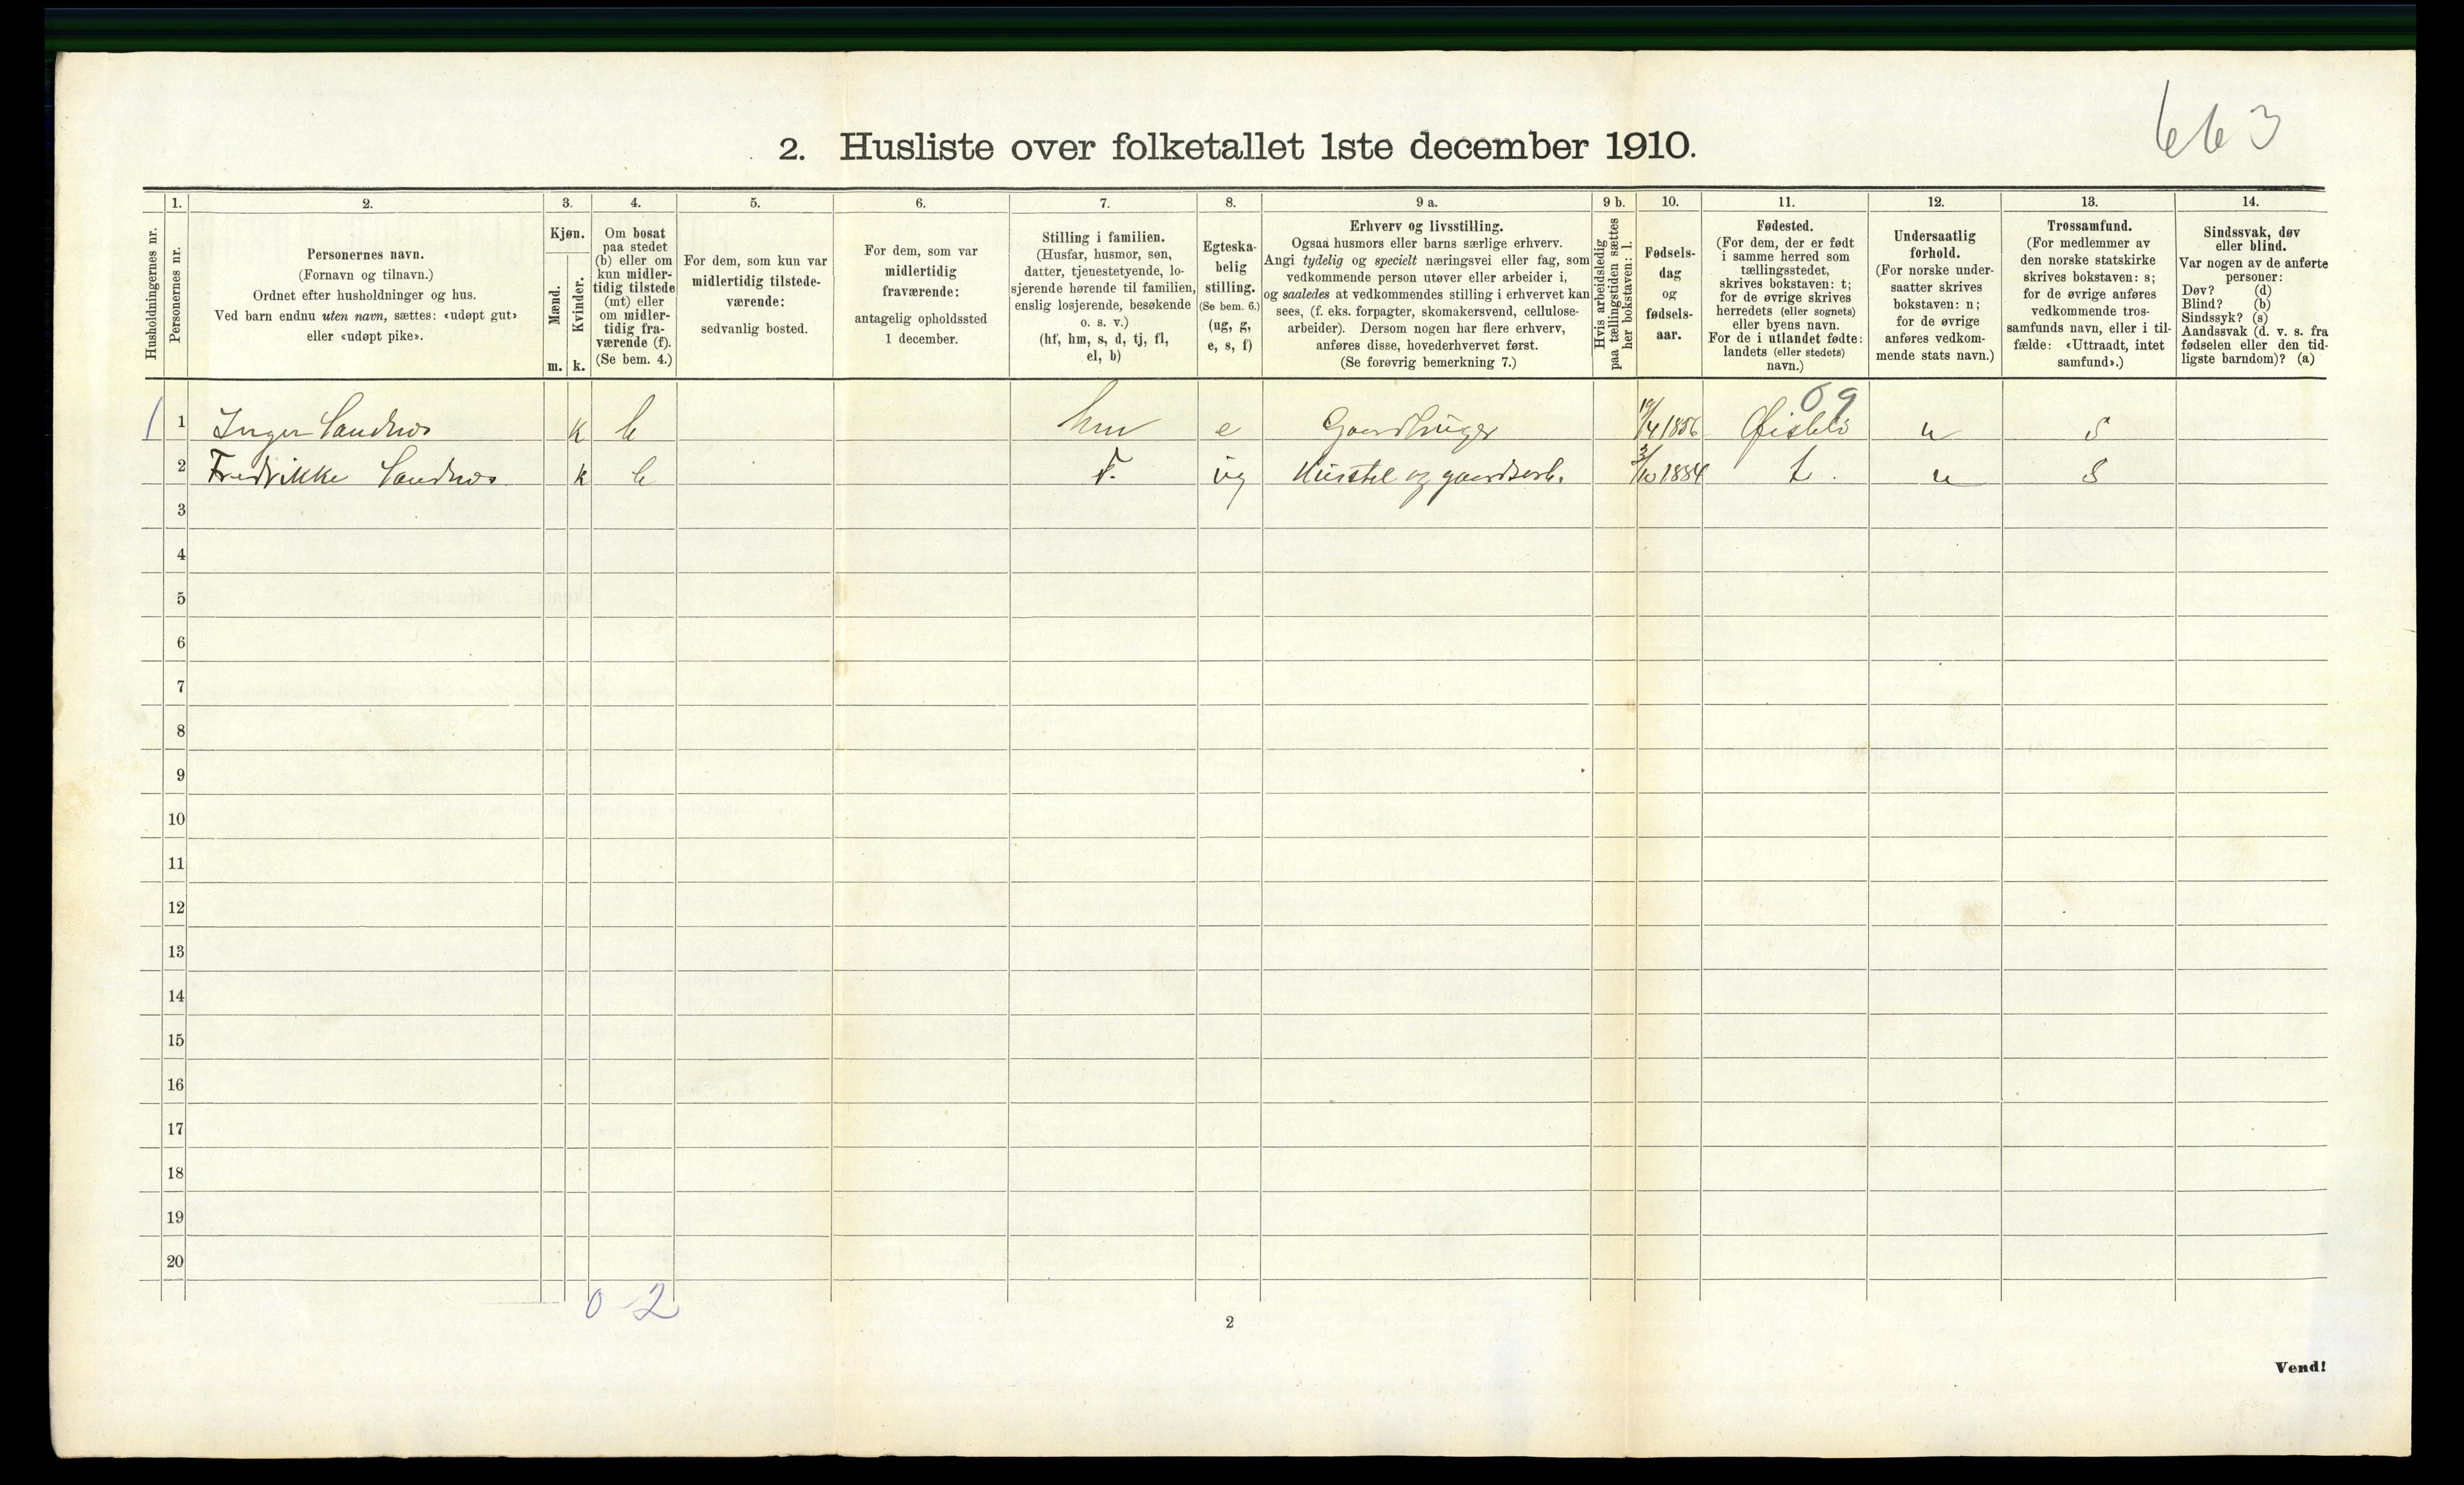 663
2. Husliste over folketallet 1ste december 1910.
Husholdningernes nr.
1.
Personernes nr.
2.
Personernes navn.
(Fornavn og tilnavn.)
Ordnet efter husholdninger og hus.
Ved barn endnu uten navn, sættes: «udøpt gut»
eller «udøpt pike».
3.
Kjøn.
Mænd.
Kvinder.
m. k.
4.
Om bosat
paa stedet
(b) eller om
kun midler-
tidig tilstede
(mt) eller
om midler-
tidig fra-
værende (f).
(Se bem. 4.)
5.
For dem, som kun var
midlertidig tilstede-
værende:
sedvanlig bosted.
6.
For dem, som var
midlertidig
fraværende:
antagelig opholdssted
1 december.
7.
Stilling i familien.
(Husfar, husmor, søn,
datter, tjenestetyende, lo-
sjerende hørende til familien,
enslig losjerende, besøkende
o. s. v.)
(hf, hm, s, d, tj, fl,
el, b)
8.
Egteska-
belig
stilling.
(Se bem. 6.)
(ug, g,
e, s, f)
9 a.
Erhverv og livsstilling.
Ogsaa husmors eller barns særlige erhverv.
Angi tydelig og specielt næringsvei eller fag, som
vedkommende person utøver eller arbeider i,
og saaledes at vedkommendes stilling i erhvervet kan
sees, (f. eks. forpagter, skomakersvend, cellulose-
arbeider). Dersom nogen har flere erhverv,
anføres disse, hovederhvervet først.
(Se forøvrig bemerkning 7.)
9 b.
Hvis arbeidsledig
paa tællingstiden sættes
her bokstaven: l.
10.
Fødsels-
dag
og
fødsels-
aar.
11.
Fødested.
(For dem, der er født
i samme herred som
tællingsstedet,
skrives bokstaven: t;
for de øvrige skrives
herredets (eller sognets)
eller byens navn.
For de i utlandet fødte:
landets (eller stedets)
navn.)
12.
Undersaatlig
forhold.
(For norske under-
saatter skrives
bokstaven: n;
for de øvrige
anføres vedkom-
mende stats navn.)
13.
Trossamfund.
(For medlemmer av
den norske statskirke
skrives bokstaven: s;
for de øvrige anføres
vedkommende tros-
samfunds navn, eller i til-
fælde: «Uttraadt, intet
samfund».)
14.
Sindssvak, døv
eller blind.
Var nogen av de anførte
personer:
Døv? (d)
Blind? (b)
Sindssyk? (s)
Aandssvak (d. v. s. fra
fødselen eller den tid-
ligste barndom)? (a)
09
1 1 Inger Sandnes k b hm e Gaardbruger /4 1856 n s
2 Fredrikke Sandnes k b F. ug Husstel og gaardsarb. 3/10 1884 t. n s
3
4
5
6
7
8
9
10
11
12
13
14
15
16
17
18
19
20
0-2
2
Vend!